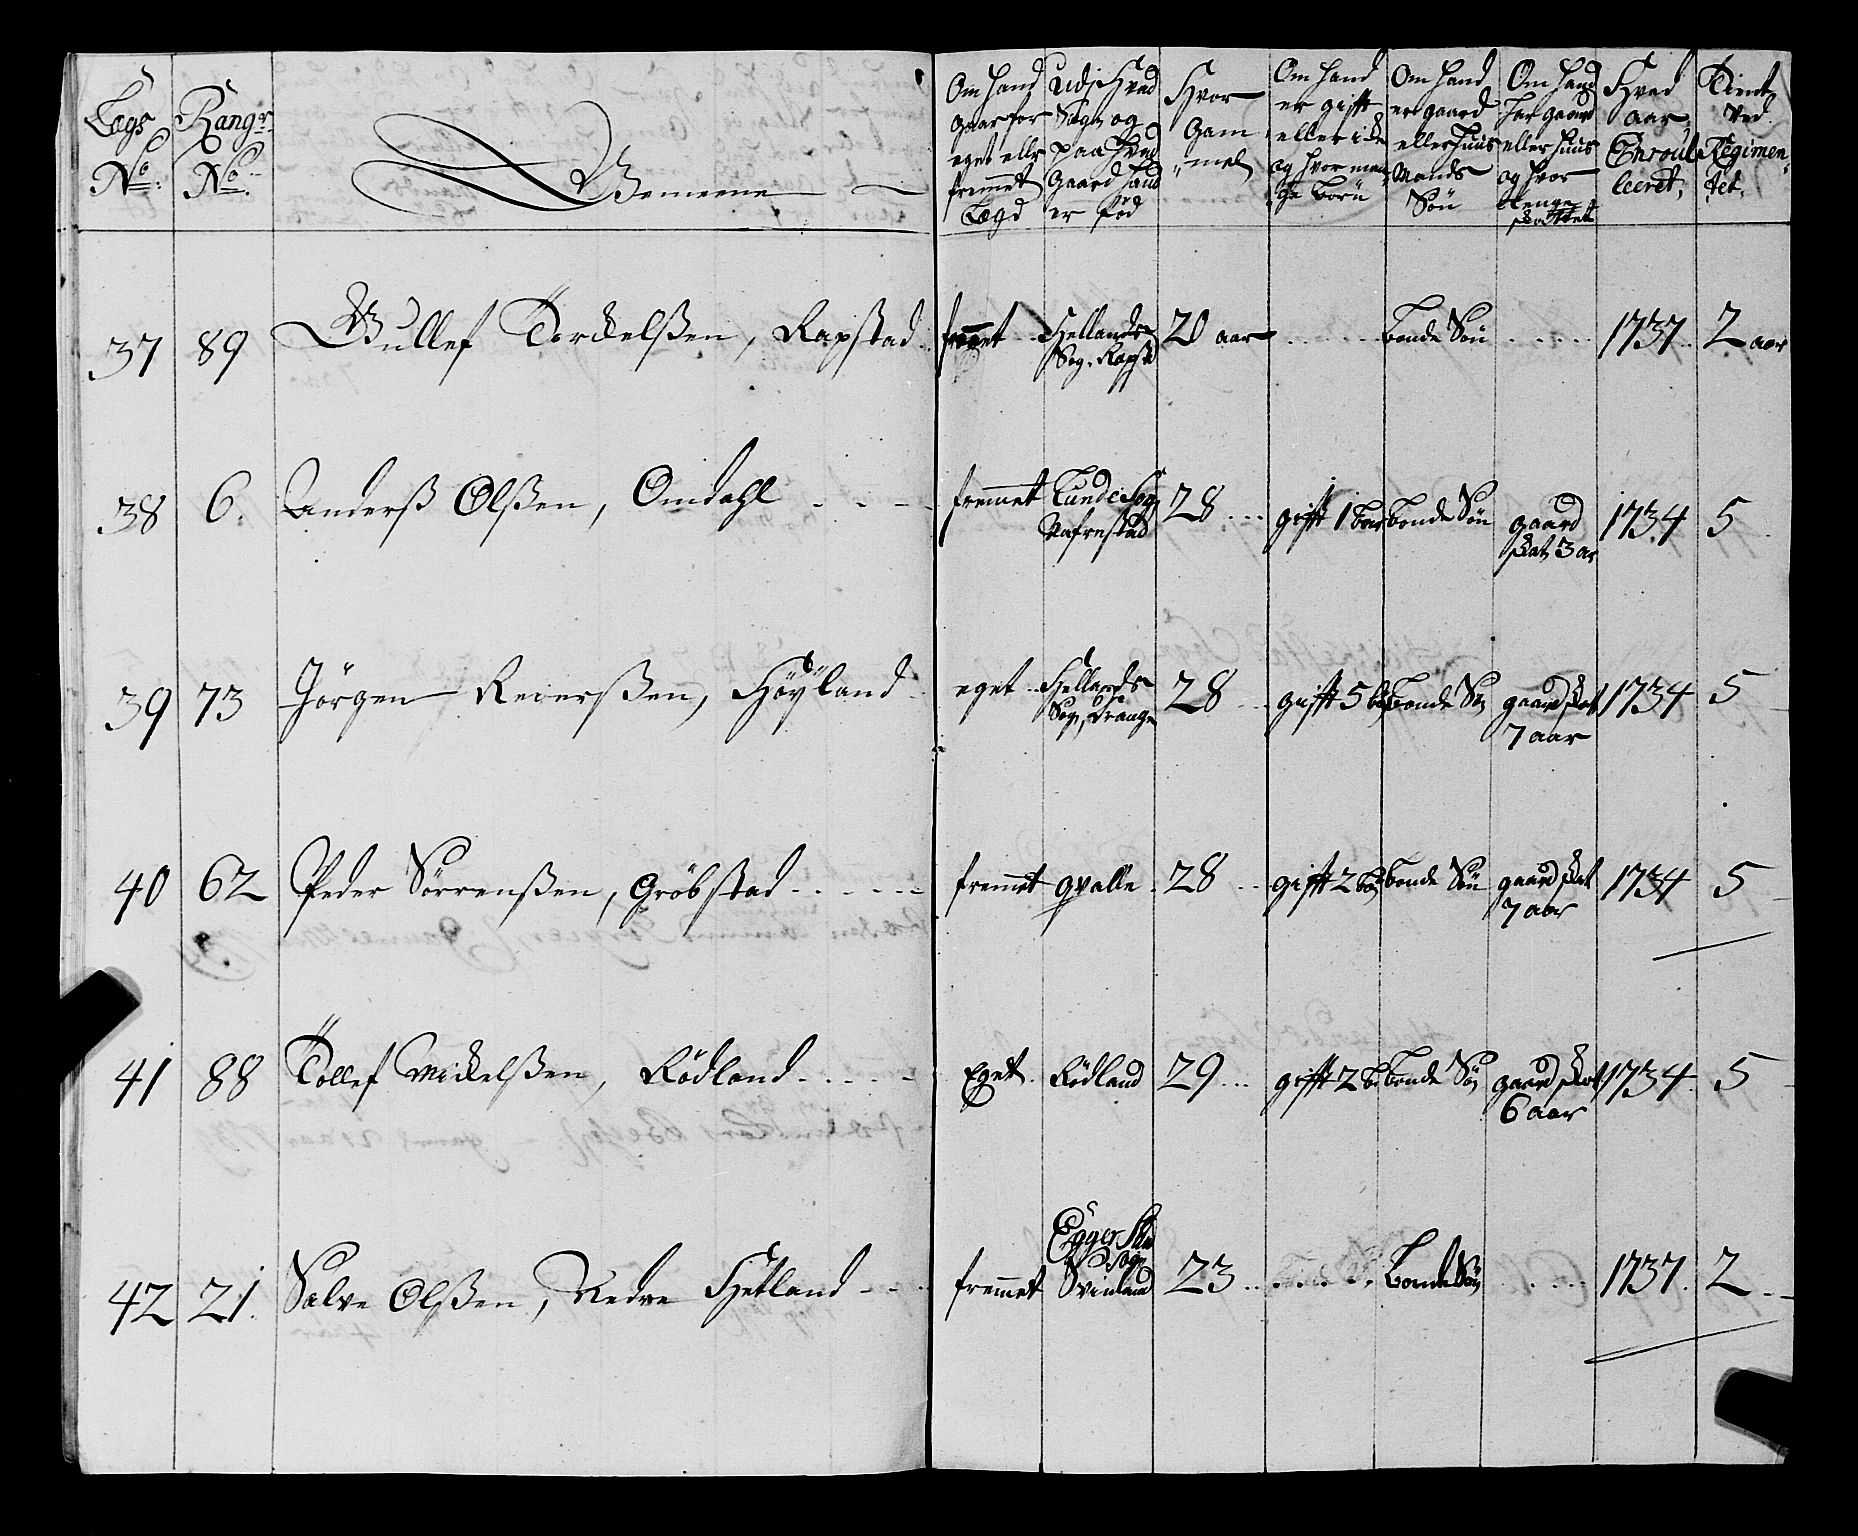 Lægs No: Rangs No. Gemeene
Om hand gaar for eget eller fremmet Lægd
Udj hvad Sogn og paa hvad Gaard hand er föd
Hvor Gammel
Om hand er gifft eller icke og hvor mange börn
Om hand er gaard eller huus Mands Sön
Om hand har gaard eller huus og hvor lenge skattet
Hved aar Enroulleeret,
Tient ved Regimentet.
37 89 Gullef Torckelßen, Rapstad fremmet Hellands Sog. Rapst 20 aar bonde Sön 1737. 2 aar
38 6. Anderß Olßen, Omdahl fremmet Lunde Sog, 28 gifft 1 bar bonde Sön gaard skat 3 ar 1734 5
39 73 Jörgen Reierßen, Höyland eget Hellands Sogn, Drange 28 gifft 5 b bonde Sön gaard skat 7 aar 1734 5
40 62 Peder Sörrenßen, Gröbstad fremmet qvalle 28 gifft 2 bör bonde Sön gaard skat 7 aar 1734 5
41 88 Tollef Mickelßen, Rödland Eget Rödland 29 gifft 2 b bonde Sön gaard skat 6 aar 1734 5
42 21. Salve Olßen, Nedre Hetland fremmet Sogn Svinland 23 Bonde Sön 1737. 2